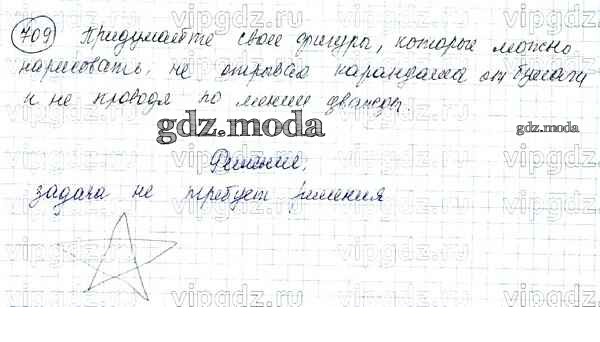 709 Придумайте свои фигуры, которые можно
нарисовать, не отрывая карандаша от бумаги
и не проводя по линии дважды.
gdz.moda
gdz.moda
Решение.
задача не требует решения
vipgdz.ru